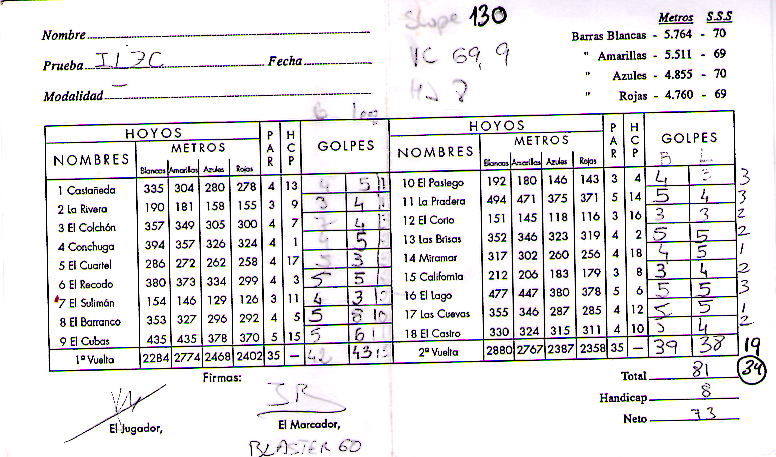 Slope 130
VC 69,9
HJ 8
Metros S.S.S
Barras Blancas - 5.764 - 70
" Amarillas - 5.511 - 69
" Azules - 4.855 - 70
" Rojas - 4.760 - 69
Nombre
Prueba Fecha
Modalidad
HOYOS PAR HCP GOLPES
NOMBRES METROS
Blancas Amarillas Azules Rojas
1 Castañeda 335 304 280 278 4 13 5
2 La Rivera 190 181 158 155 3 9 3 4
3 El Colchón 357 349 305 300 4 7 4
4 Conchuga 394 357 326 324 4 1 5
5 El Cuartel 286 272 262 258 4 17 3
6 El Recodo 380 373 334 299 4 3 5 5
7 El Sulimán 154 146 129 126 3 11 4 3
8 El Barranco 353 327 296 292 4 5 5 8
9 El Cubas 435 435 378 370 5 15 5 6
1ª Vuelta 2284 2774 2468 2402 35 — 42 43
HOYOS PAR HCP GOLPES
NOMBRES METROS B L
Blancas Amarillas Azules Rojas
10 El Pasiego 192 180 146 143 3 4 4 3 3
11 La Pradera 494 471 375 371 5 14 5 4 3
12 El Corio 151 145 118 116 3 16 3 3 2
13 Las Brisas 352 346 323 319 4 2 5 5 2
14 Miramar 317 302 260 256 4 18 4 5 1
15 California 212 206 183 179 3 8 3 4 2
16 El Lago 477 447 380 378 5 6 5 5 3
17 Las Cuevas 355 346 287 285 4 12 5 5 1
18 El Castro 330 324 315 311 4 10 5 4 2
2ª Vuelta 2880 2767 2387 2358 35 — 39 38 19
34
Firmas:
El Jugador,
El Marcador,
BLASTER 60
Total 81
Handicap 8
Neto 73